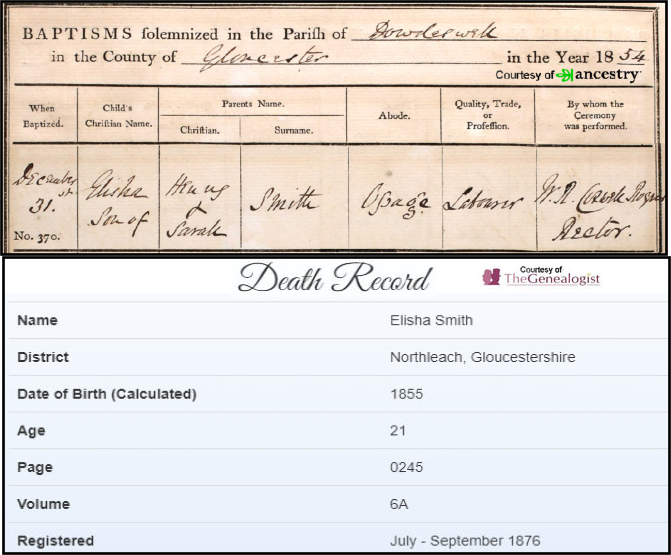 BAPTISMS solemnized in the Parish of Dowdeswell
in the County of Gloucester in the Year 1854
Courtesy of ancestry
When Baptized.
Child's Christian Name.
Parents Name.
Christian.
Surname.
Abode.
Quality, Trade, or Profession.
By whom the Ceremony was performed.
December 31st.
No. 370.
Elisha
Son of
Henry
&
Sarah
Smith
Labourer
Rector.
Death Record
Courtesy of
TheGenealogist
Name Elisha Smith
District Northleach, Gloucestershire
Date of Birth (Calculated) 1855
Age 21
Page 0245
Volume 6A
Registered July - September 1876